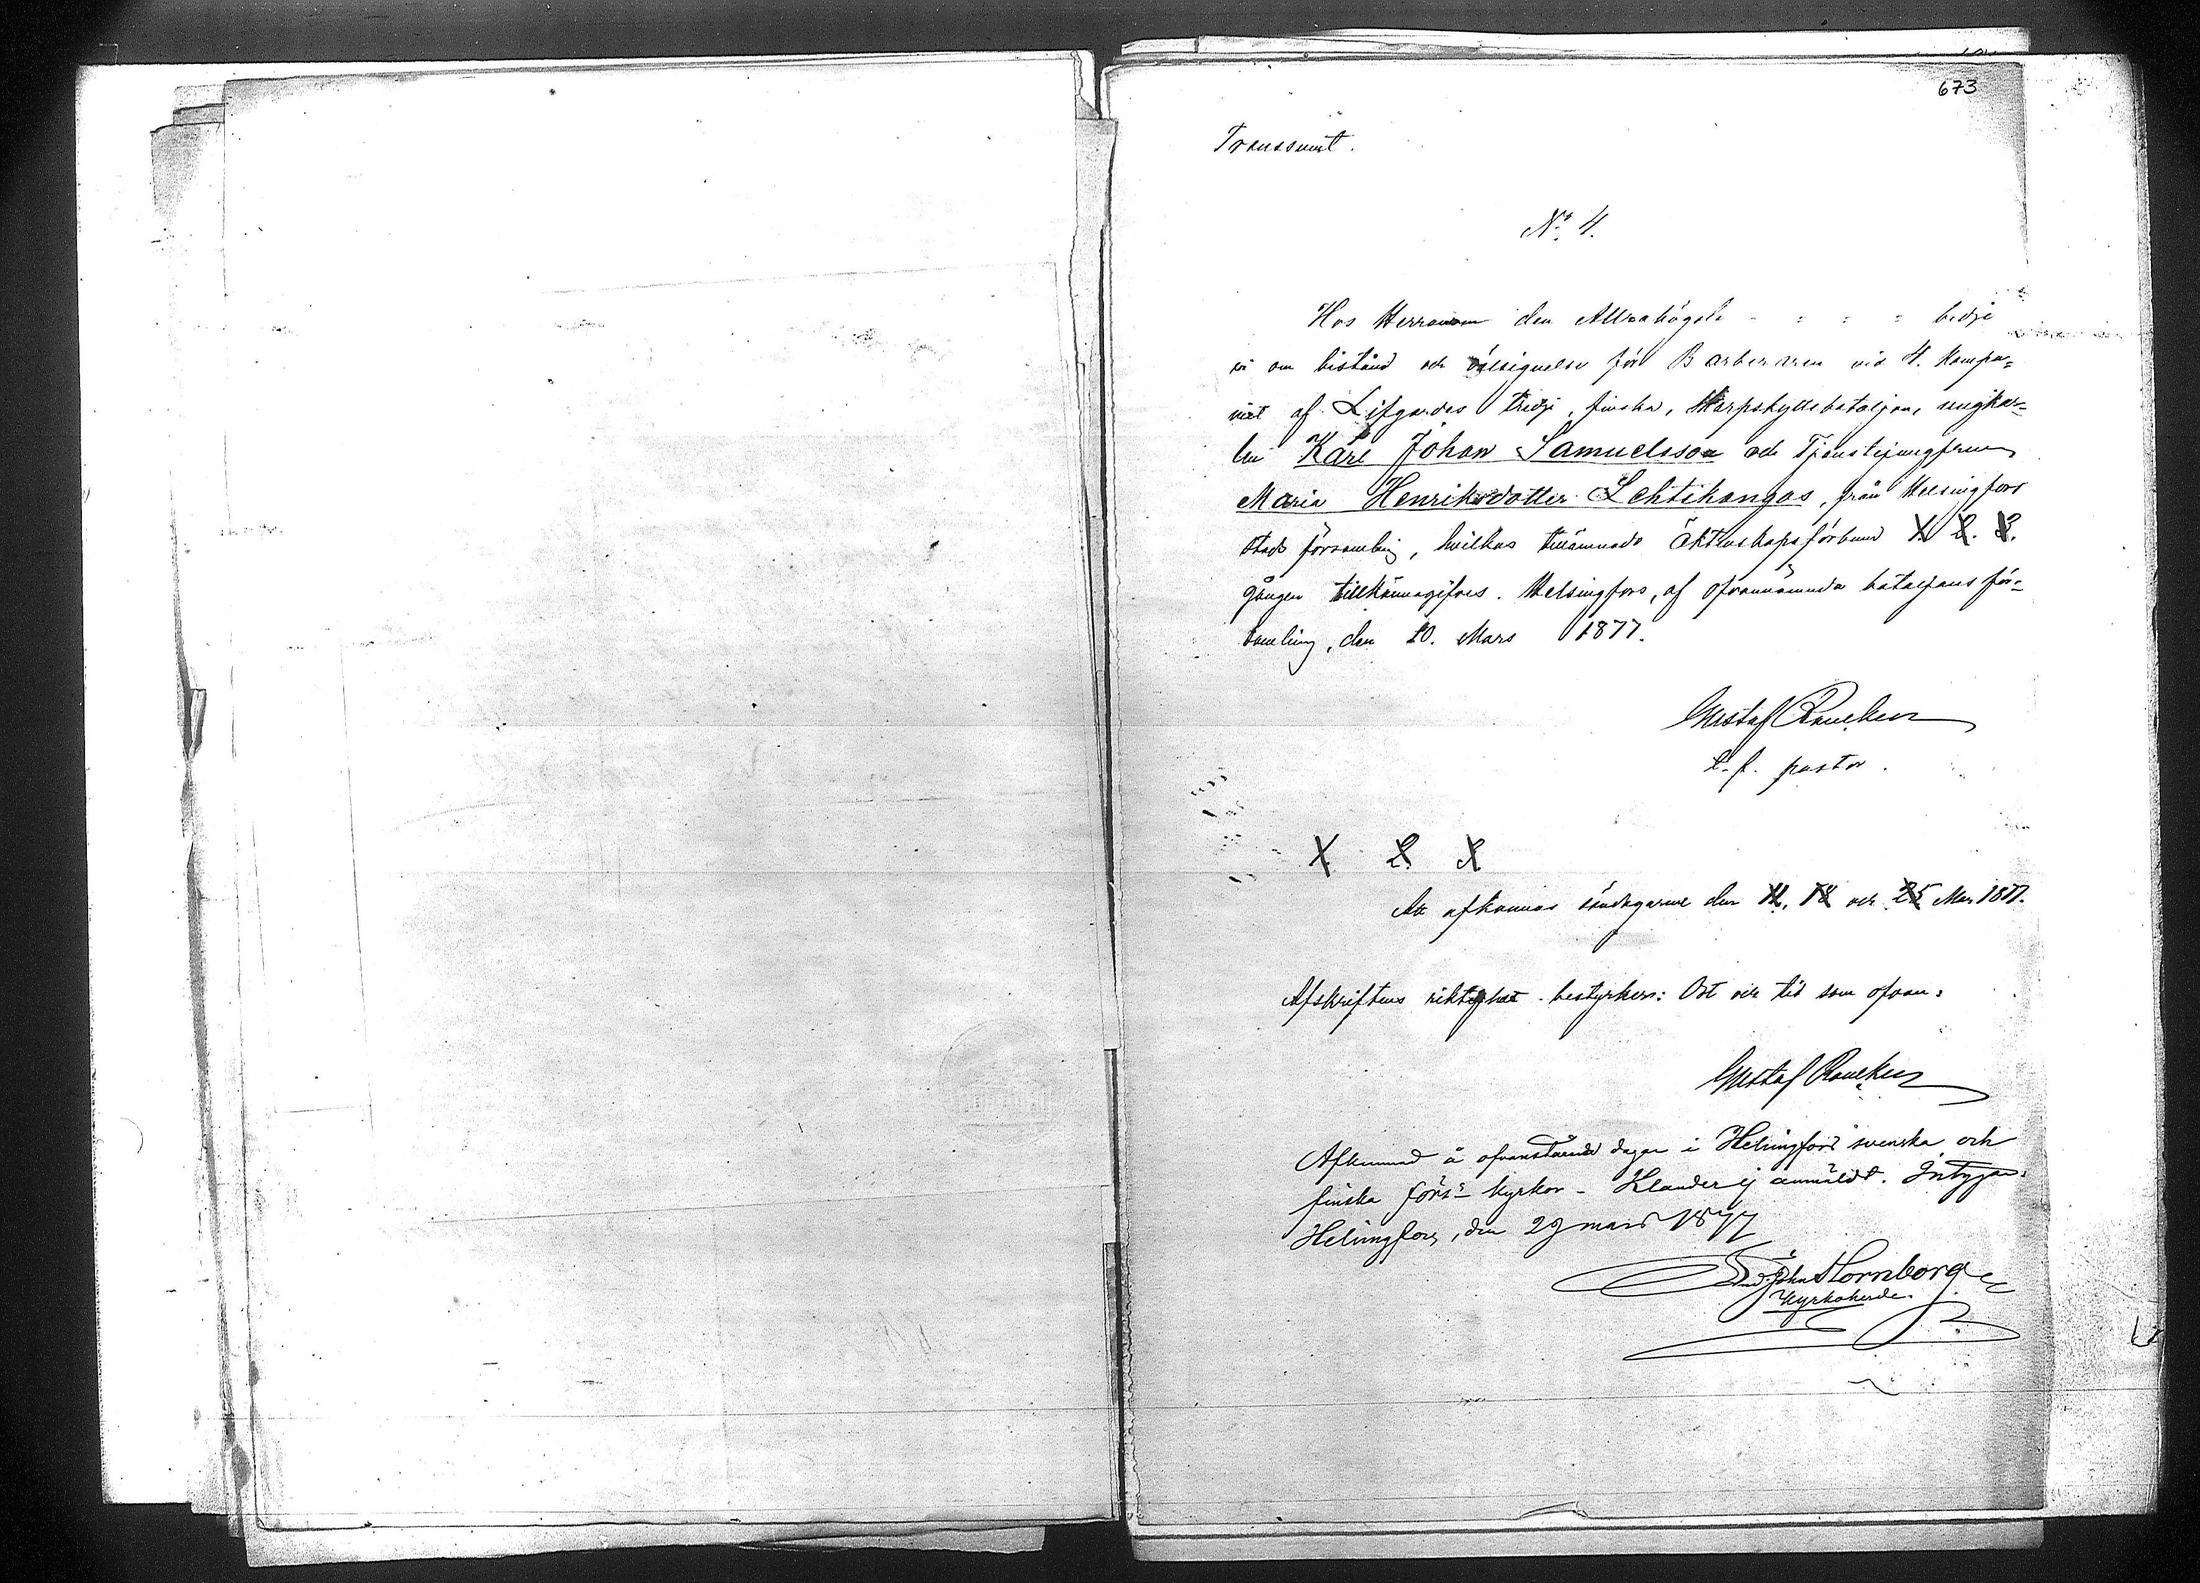 673
Transsumt.
No. 4.
Hos Herranom den Allrahögste - - - - bedje
vi om bistånd och välsignelse för Barberaren vid 4. Kompa=
niet af Lifgardes tredje, finska, Skarpskyttebataljon, ungkar=
len Karl Johan Samuelsson och Tjenstejungfrun
Maria Henriksdotter Lehtikangas, från Helsingfors
stads församling, hvilkas tillämnade Äktenskapsförbund 1. 2. 3.
gången tillkännagifves. Helsingfors, af ofvannämnda bataljons för=
samling, den 10. Mars 1877.
Gustaf Rancken
t. f. pastor.
1. 2. 3.
Att afkunnas söndagarne den 11, 18 och 25 Mars 1877.
Afskriftens riktighet bestyrkes: Ort och tid som ofvan:
Gustaf Rancken
Afkunnad å ofvanstående dagar i Helsingfors svenska och
finska förs:s kyrkor - Klander ej anmäldt. Intygar:
Helsingfors, den 29 mars 1877
John Hornborg
Kyrkoherde.